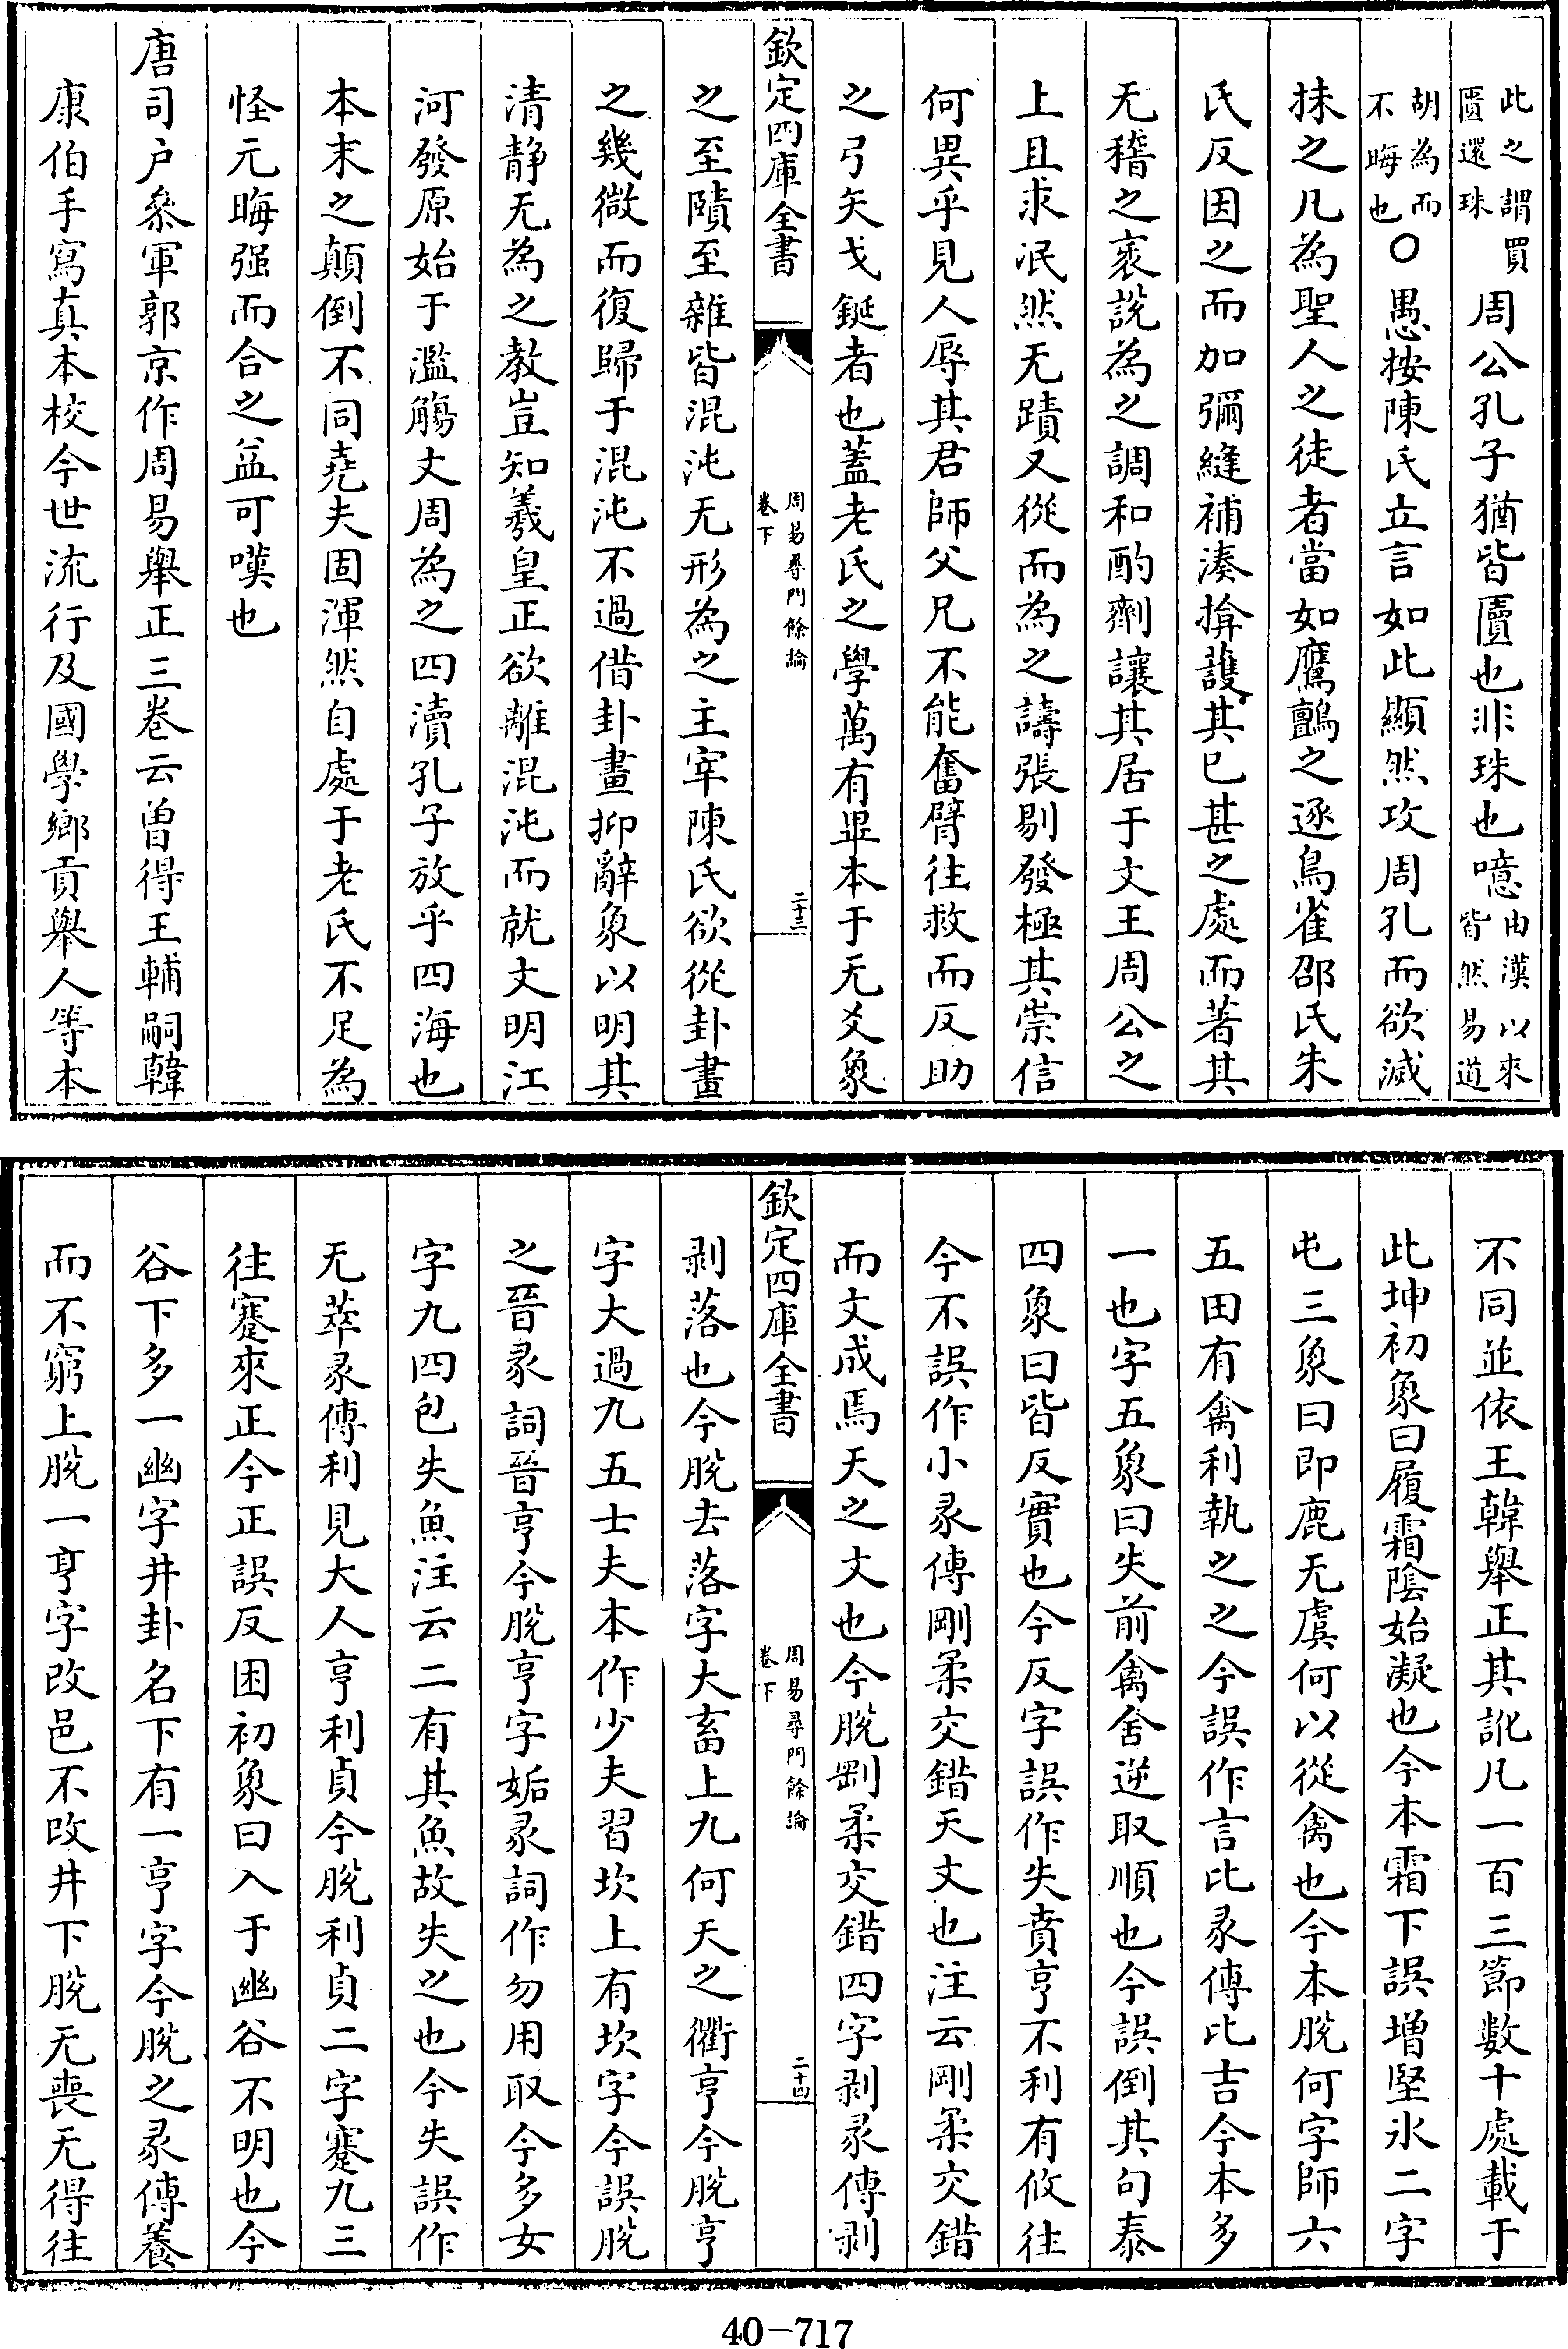 此之謂買匵還珠周公孔子猶皆匵也非珠也噫由漢以來皆然易道
胡為而不晦也〇愚按陳氏立言如此顯然攻周孔而欲滅
抹之凡為聖人之徒者當如鷹鸇之逐鳥雀邵氏朱
氏反因之而加彌縫補湊揜護其已甚之處而著其
无稽之衺說為之調和酌劑讓其居于文王周公之
上且求泯然无蹟又從而為之譸張剔發極其崇信
何異乎見人辱其君師父兄不能奮臂往救而反助
之弓矢戈鋋者也蓋老氏之學萬有畢本于无爻象
欽定四庫全書
周易尋門餘論
卷下
二十三
之至賾至雜皆混沌无形為之主宰陳氏欲從卦畫
之幾微而復歸于混沌不過借卦畫抑辭象以明其
清靜无為之教豈知羲皇正欲離混沌而就文明江
河發原始于濫觴文周為之四瀆孔子放乎四海也
本末之顛倒不同堯夫固渾然自處于老氏不足為
怪元晦强而合之盆可嘆也
唐司户叅軍郭京作周易舉正三卷云曽得王輔嗣韓
康伯手寫真本校今世流行及國學鄉貢舉人等本
不同並依王韓舉正其訛凡一百三節數十處載于
此坤初象曰履霜陰始凝也今本霜下誤増堅氷二字
屯三象曰即鹿无虞何以從禽也今本脫何字師六
五田有禽利執之之今誤作言比彖傳比吉今本多
一也字五象曰失前禽舍逆取順也今誤倒其句泰
四象曰皆反實也今反字誤作失賁亨不利有攸往
今不誤作小彖傳剛柔交錯天文也注云剛柔交錯
而文成焉天之文也今脫剛柔交錯四字剥彖傳剥
欽定四庫全書
周易尋門餘論
卷下
二十四
剥落也今脫去落字大畜上九何天之衢亨今脫亨
字大過九五士夫本作少夫習坎上有坎字今誤脫
之晉彖詞晉亨今脫亨字姤彖詞作勿用取今多女
字九四包失魚注云二有其魚故失之也今失誤作
无萃彖傳利見大人亨利貞今脫利貞二字蹇九三
往蹇來正今正誤反困初象曰入于幽谷不明也今
谷下多一幽字井卦名下有一亨字今脫之彖傳養
而不窮上脫一亨字改邑不改井下脫无喪无得往
40-717